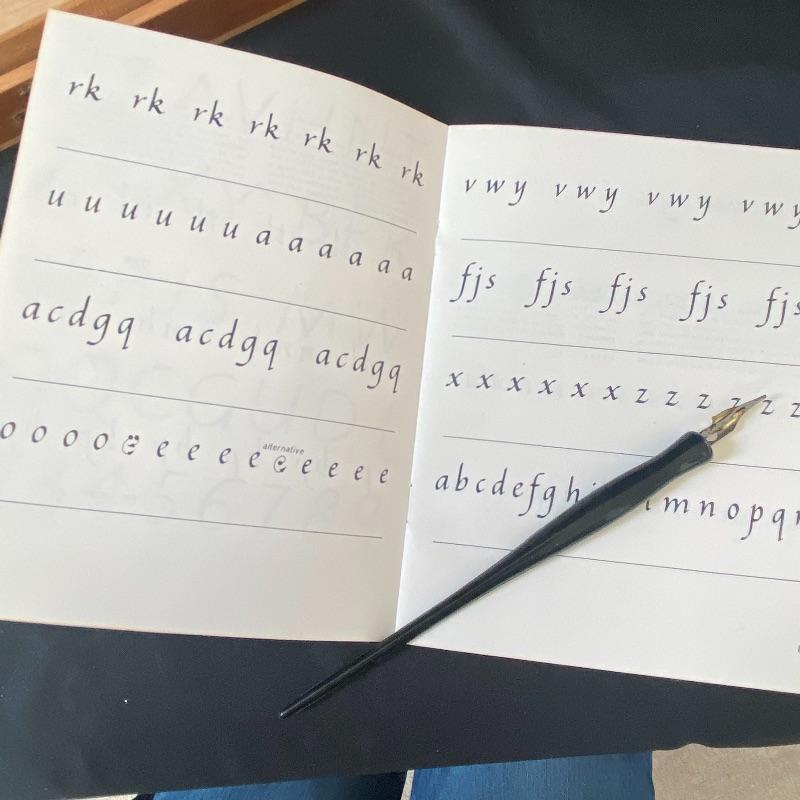 rk rk rk rk rk rk rk
u u u u u u a a a a a a
acdgq acdgq acdgq
o o o o e e e e e e e e e e
alternative
vwy vwy vwy vwy
fjs fjs fjs fjs fjs
x x x x x x z z z z z z
abcdefgh mnopq